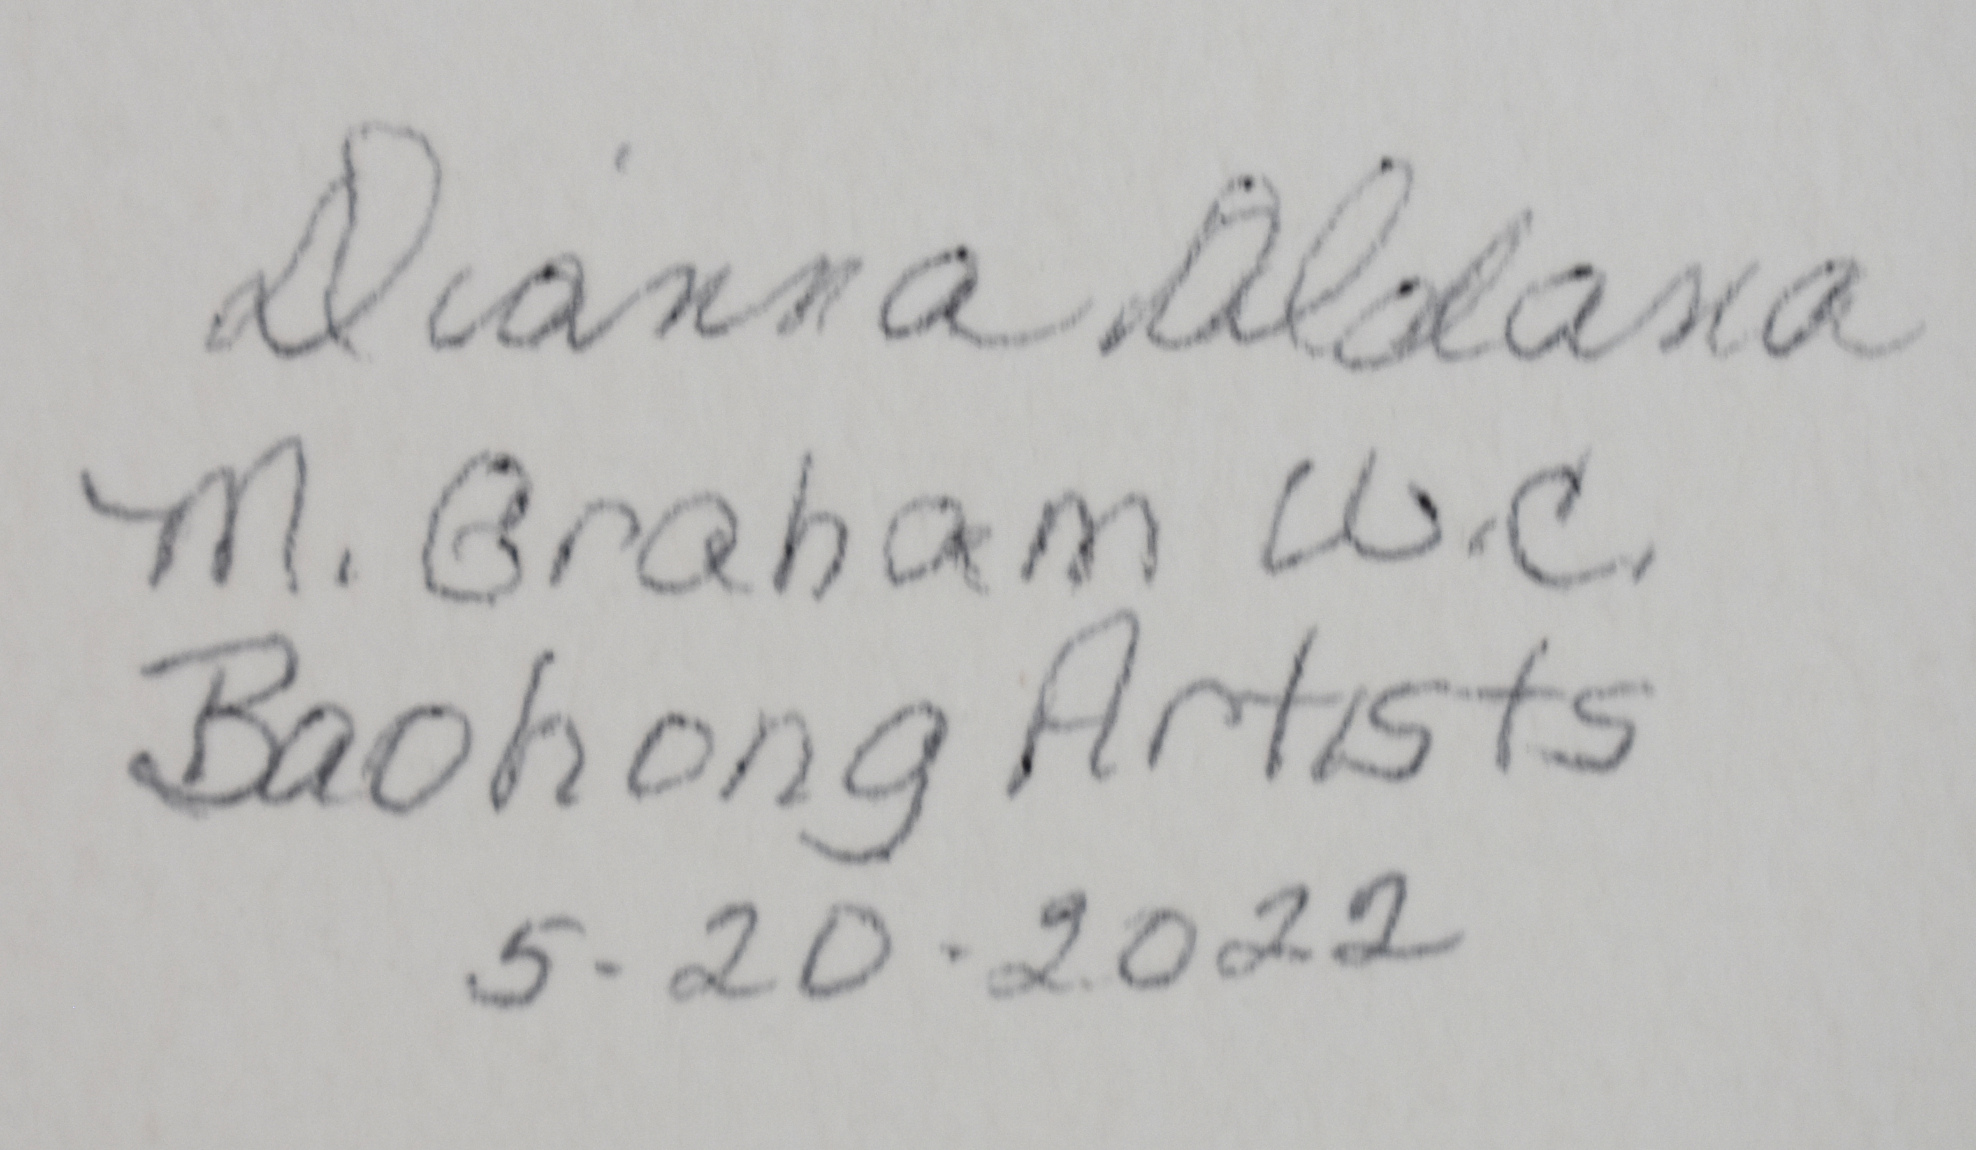 Dianna Aldana
M. Graham W.C.
Baohong Artists
5-20-2022